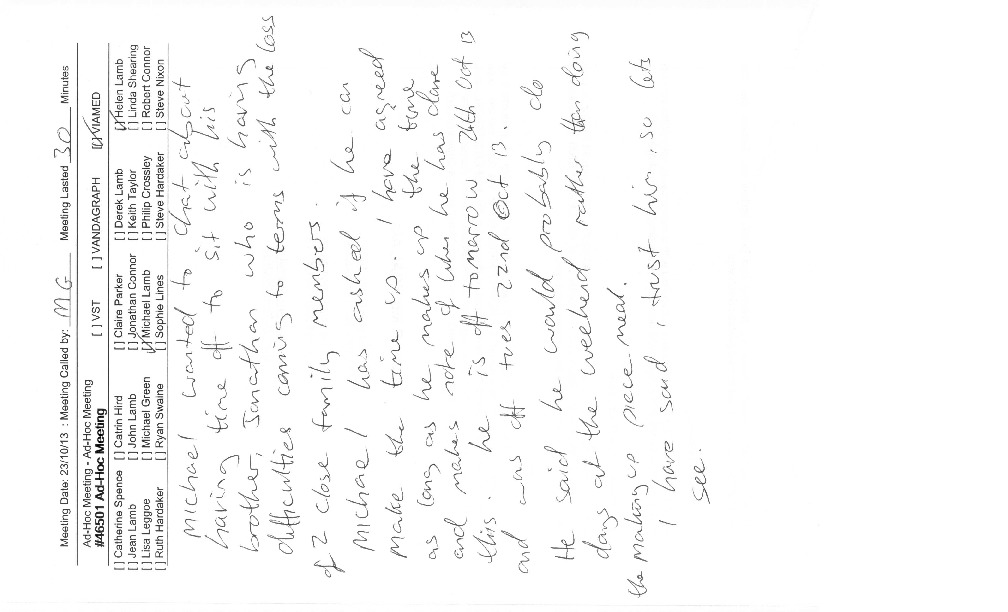 Meeting Date: 23/10/13 : Meeting Called by: MG Meeting Lasted 30 Minutes
Ad-Hoc Meeting - Ad-Hoc Meeting [ ] VST [ ] VANDAGRAPH [✓] VIAMED
#46501 Ad-Hoc Meeting
[ ] Catherine Spence [ ] Catrin Hird [ ] Claire Parker [ ] Derek Lamb [✓] Helen Lamb
[ ] Jean Lamb [ ] John Lamb [ ] Jonathan Connor [ ] Keith Taylor [ ] Linda Shearing
[ ] Lisa Leggoe [ ] Michael Green [✓] Michael Lamb [ ] Philip Crossley [ ] Robert Connor
[ ] Ruth Hardaker [ ] Ryan Swaine [ ] Sophie Lines [ ] Steve Hardaker [ ] Steve Nixon
Michael wanted to chat about
having time off to sit with his
brother, Jonathan who is having
difficulties coming to terms with the loss
of 2 close family members.
Michael has asked if he can
make the time up. I have agreed
as long as he makes up the time
and makes note of when he has done
this. he is off tomorrow 24th Oct 13
and was off tues 22nd Oct 13.
He said he would probably do
days at the weekend rather than doing
the making up piece meal.
I have said i trust him, so lets
see.